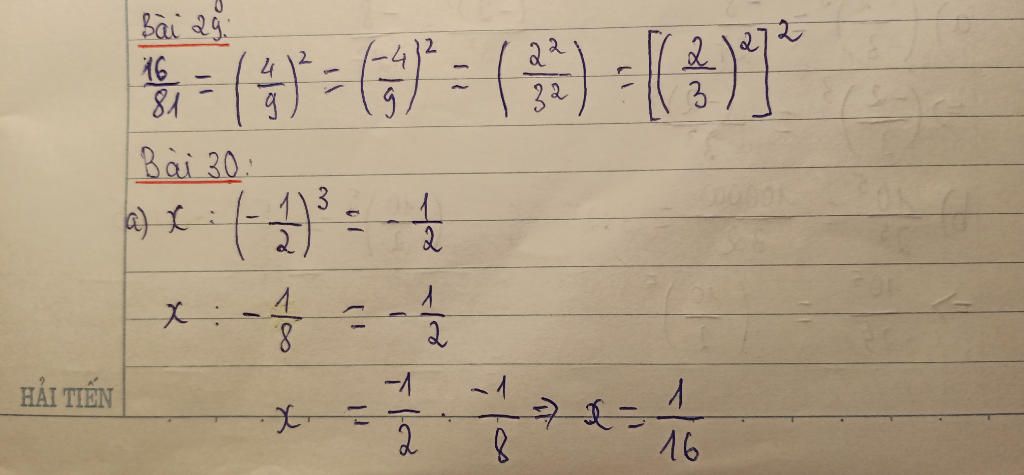 Bài 29:
16/81 = (4/9)² = (-4/9)² = (2²/3²) = [(2/3)²]²
Bài 30:
a) x : (-1/2)³ = -1/2
x : -1/8 = -1/2
HẢI TIẾN
x = -1/2 . -1/8 => x = 1/16